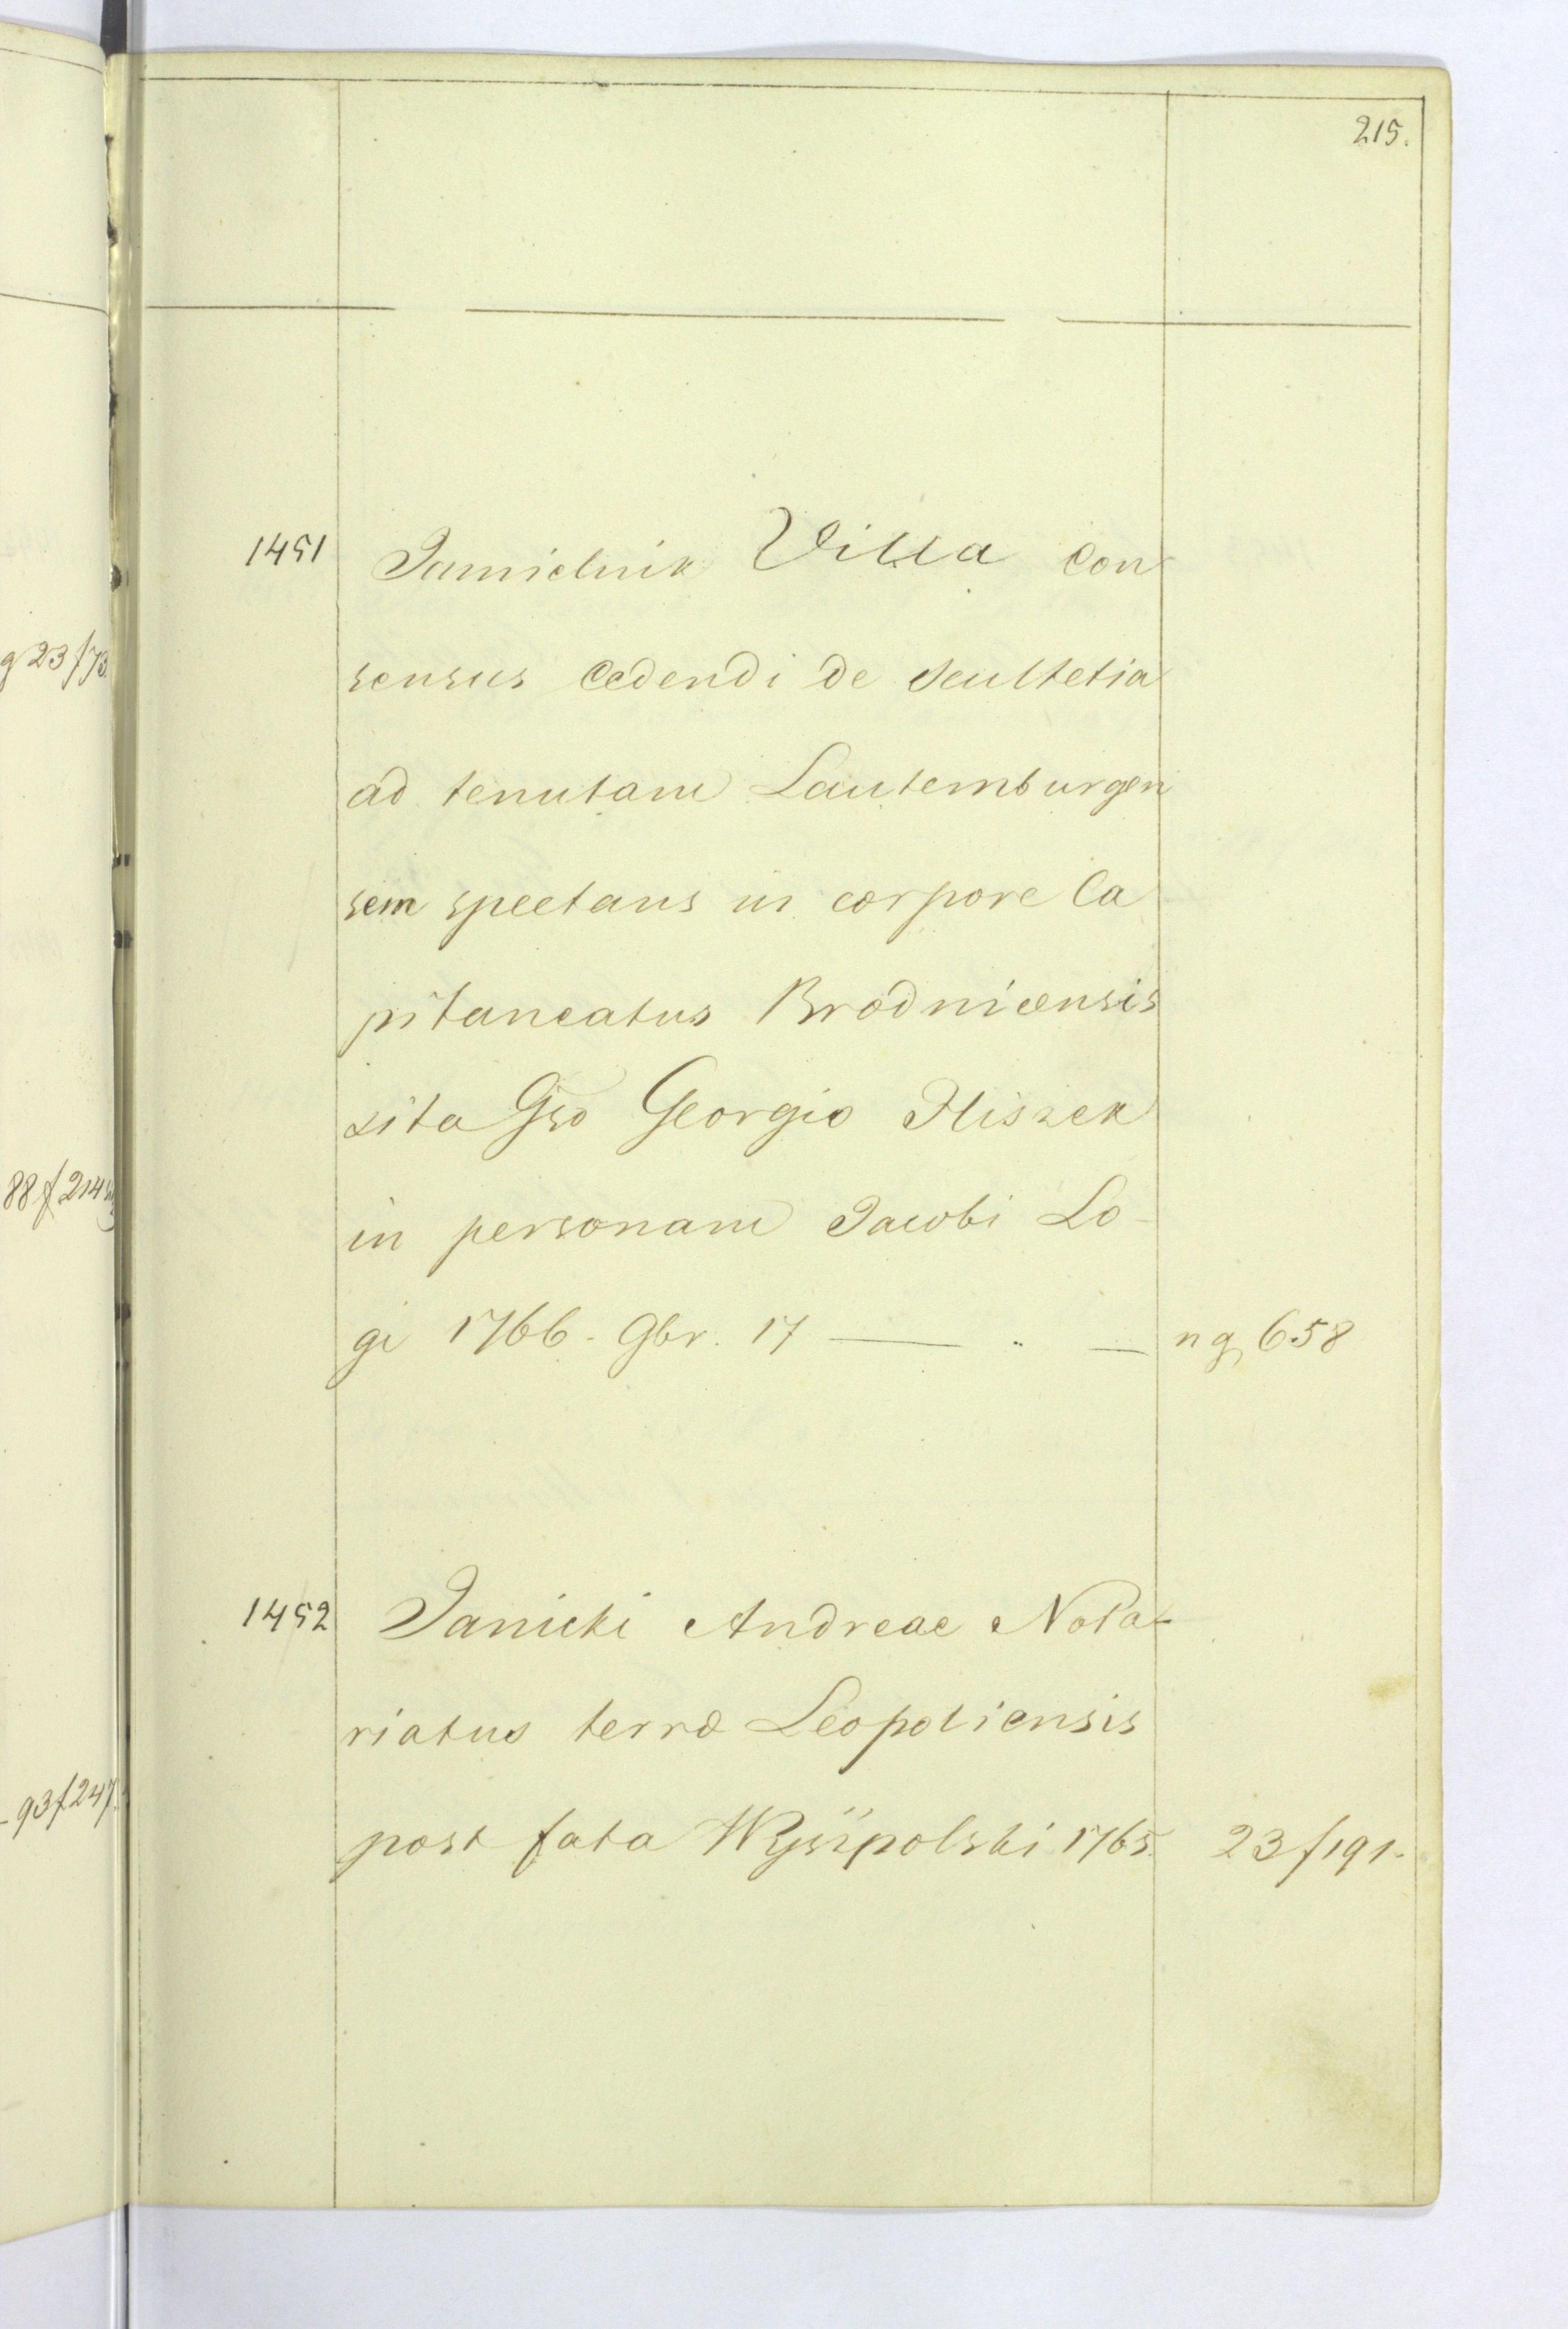 215.
1451 Jamielnik Villa con
sensus cedendi de scultetia
ad tenutam Lautemburgen
sem spectans in corpore Ca
pitaneatus Brodnicensis
sita Gso Georgio Fliszek
in personam Jacobi Lo-
gi 1766. 9br. 17 — " — ng 658
1452 Janicki Andreae Nota-
riatus terræ Leopoliensis
post fata Wyszpolski 1765. 23 f 191.
g 23 f 73.
88 f 214
93 f 247.